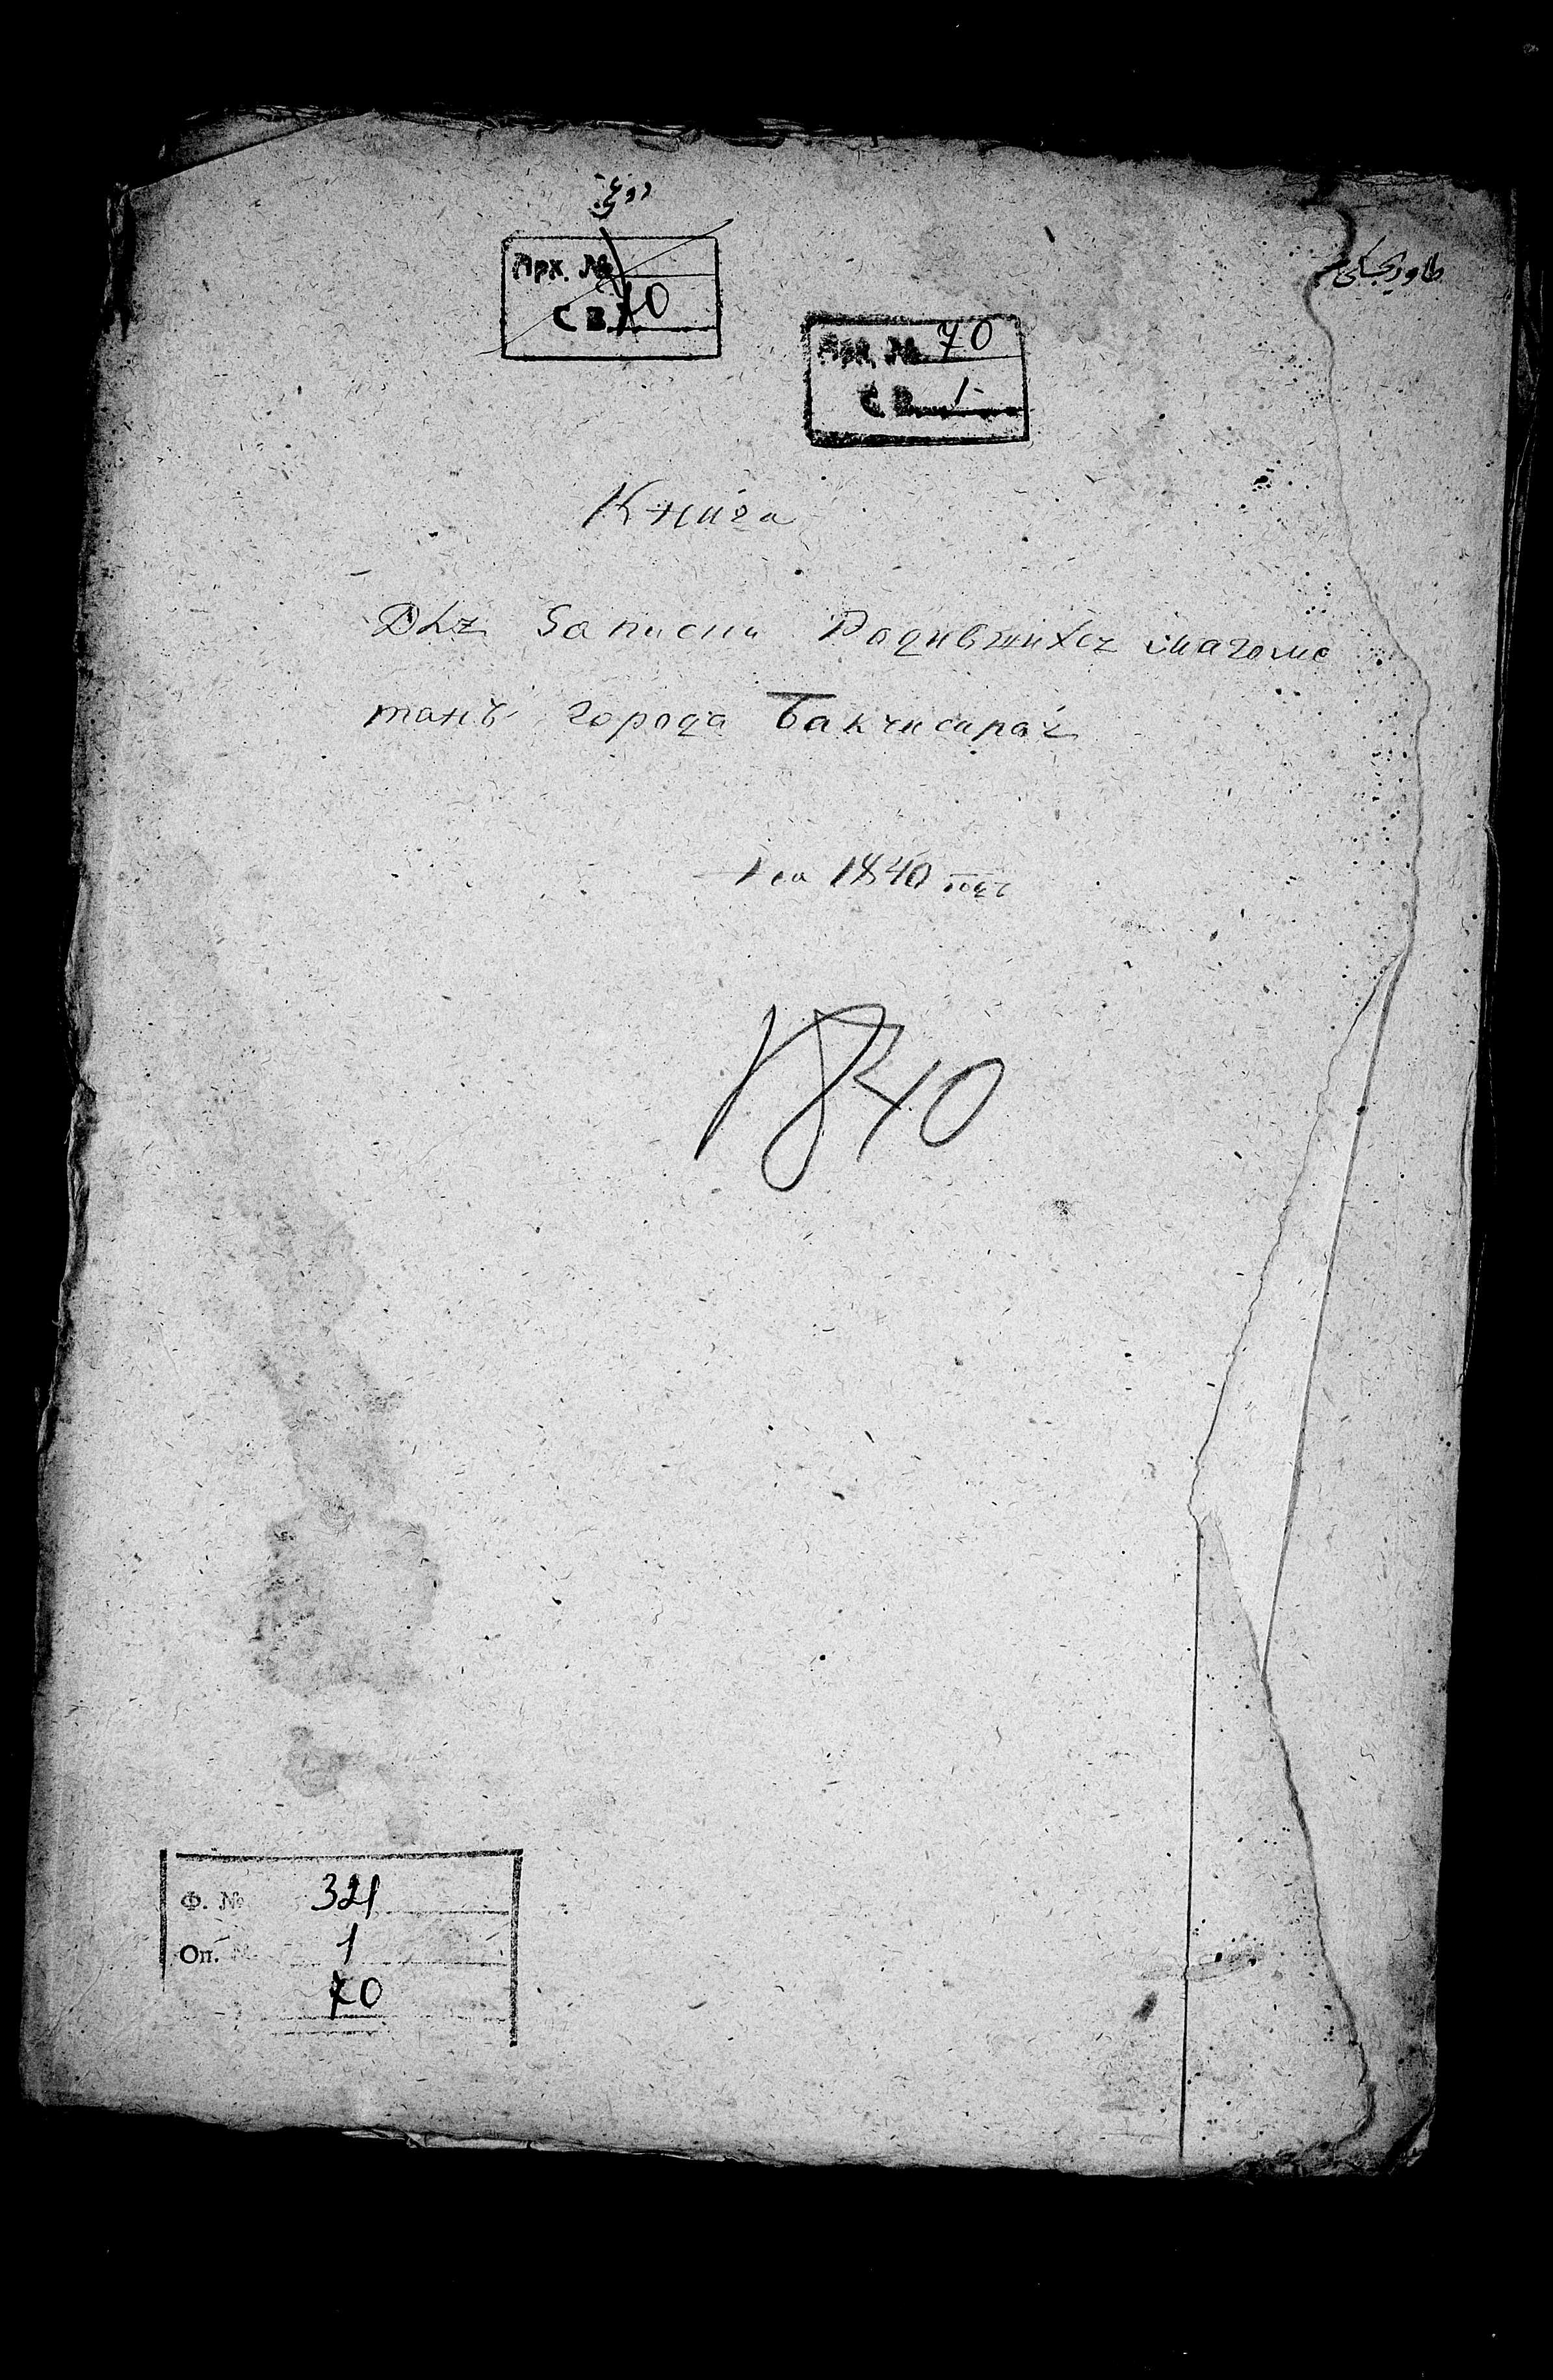 Арх. №
С В. 70
Арх. № 70
С В. 1
Книга
Для Записки Родившихся магоме
танъ города Бакчисирая
на 1840 годъ
1840
Ф. № 321
Оп. № 1
70